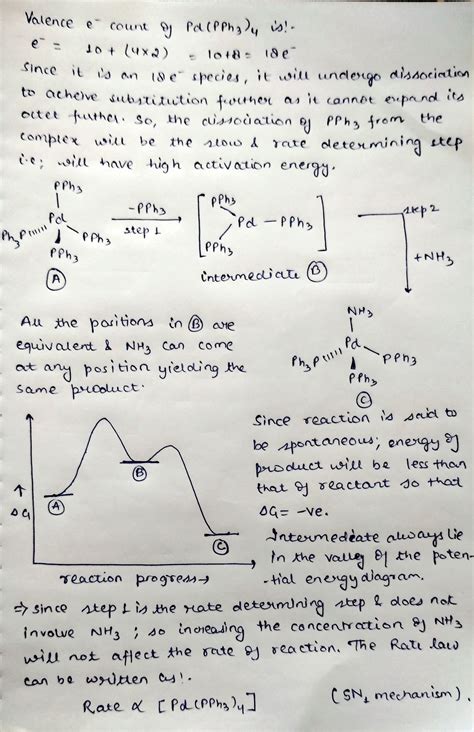 Valence e⁻ count of Pd(PPh3)4 is!-
e⁻ = 10 + (4x2) = 10+8 = 18e⁻
Since it is an 18e⁻ species, it will undergo dissociation
to acheive substitution further as it cannot expand its
octet further. So, the dissociation of PPh3 from the
complex will be the slow & rate determining step
i.e; will have high activation energy.
PPh3
Pd
Ph3P
PPh3
PPh3
(A)
-PPh3
step 1
PPh3
Pd - PPh3
PPh3
intermediate (B)
step 2
+NH3
NH3
Pd
Ph3P
PPh3
PPh3
(C)
All the positions in (B) are
equivalent & NH3 can come
at any position yielding the
same product.
ΔG
(A)
(B)
(C)
reaction progress→
Since reaction is said to
be spontaneous; energy of
product will be less than
that of reactant so that
ΔG = -ve.
Intermediate always lie
in the valley of the poten-
-tial energy diagram.
⇒ Since step 1 is the rate determining step & does not
involve NH3; so increasing the concentration of NH3
will not affect the rate of reaction. The Rate law
can be written as!.
Rate ∝ [Pd(PPh3)4]
(SN1 mechanism).